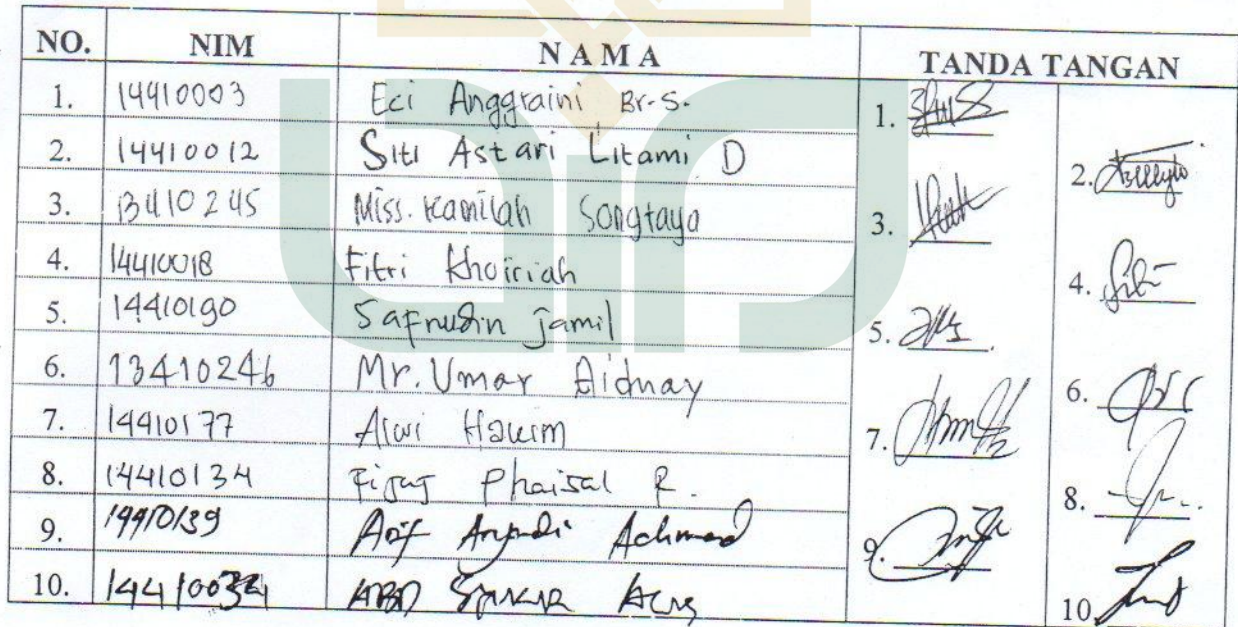 NO. NIM N A M A TANDA TANGAN
1. 14410003 Eci Anggraini Br.S. 1.
2. 14410012 Siti Astari Litami D 2.
3. 13410245 Miss. Kamilah Songtaya 3.
4. 14410018 Fitri Khoiriah 4.
5. 14410190 Safrudin Jamil 5.
6. 13410246 Mr. Umar Aidnay 6.
7. 14410177 Alwi Hakim 7.
8. 14410134 Phaisal R. 8.
9. 14410139 Arif Achmad 9.
10. ABD 10.